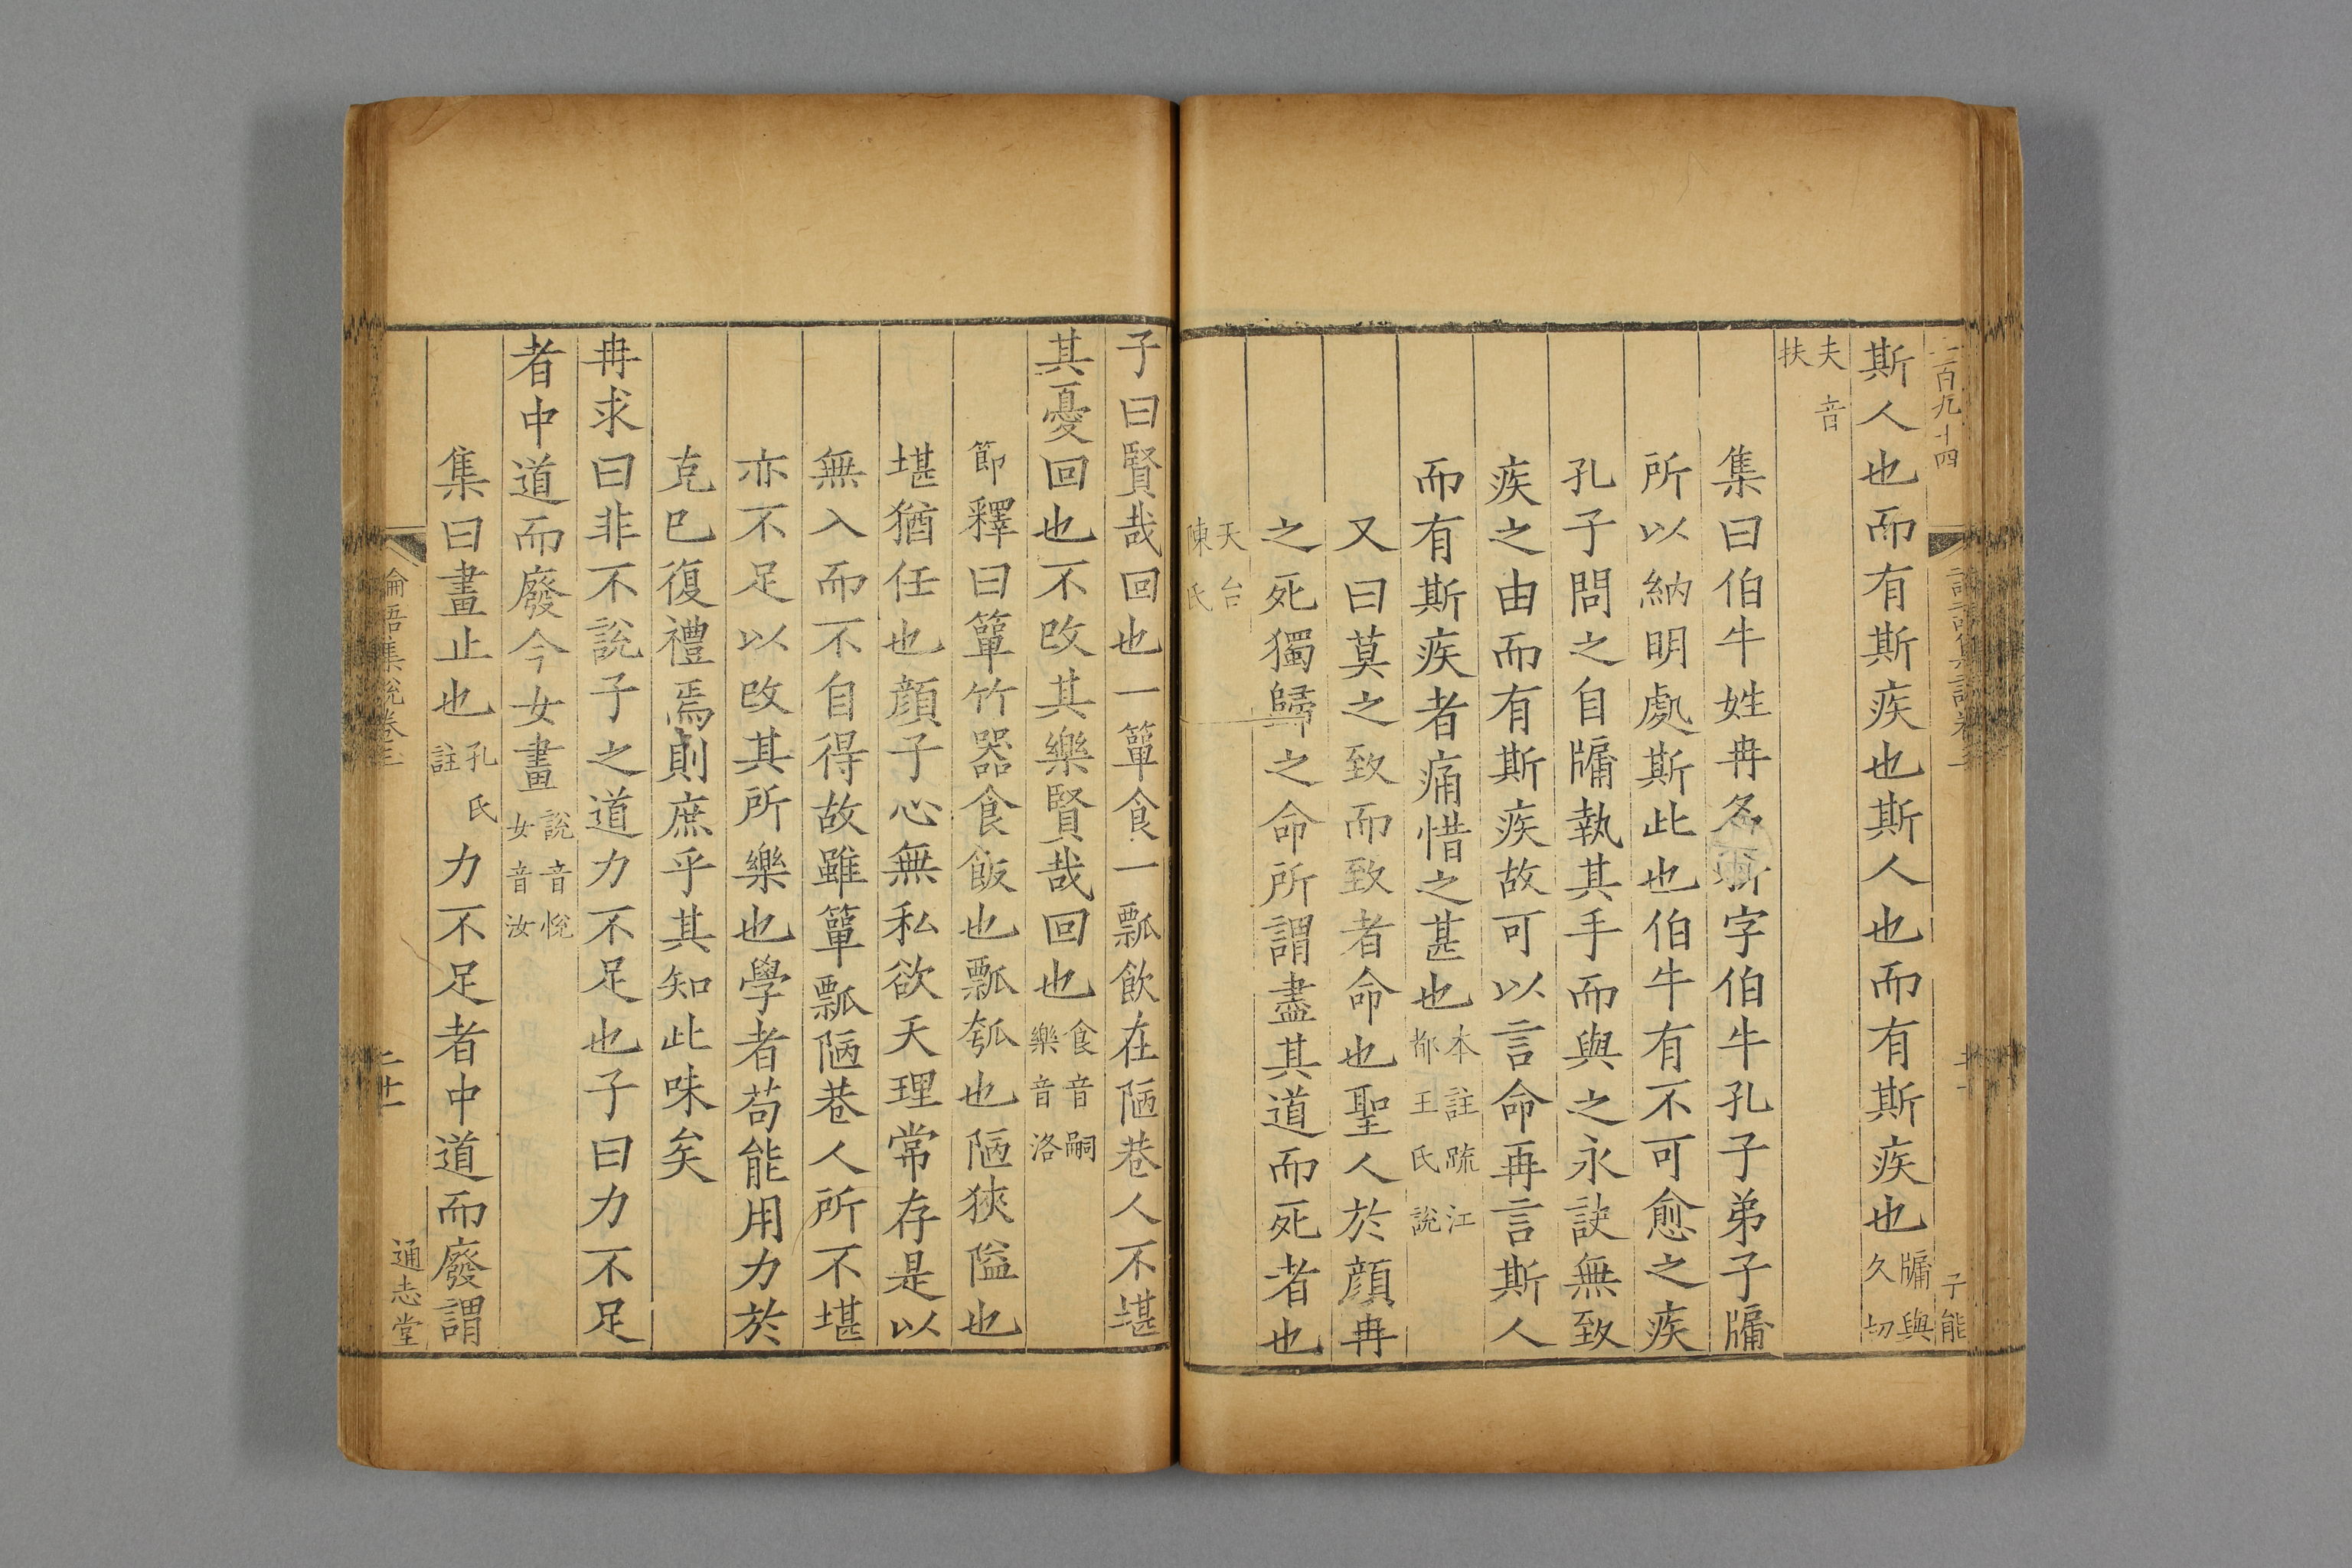 二百九十四
子能
斯人也而有斯疾也斯人也而有斯疾也牖與久切
夫音扶
集曰伯牛姓冉名字伯牛孔子弟子牖
所以納明處斯此也伯牛有不可愈之疾
孔子問之自牖執其手而與之永訣無致
疾之由而有斯疾故可以言命再言斯人
而有斯疾者痛惜之甚也本註疏江都王氏說
又曰莫之致而致者命也聖人於顏冉
之死獨歸之命所謂盡其道而死者也
天台陳氏
子曰賢哉回也一簞食一瓢飲在陋巷人不堪
其憂回也不改其樂賢哉回也食音嗣樂音洛
節釋曰簞竹器食飯也瓢瓠也陋狹隘也
堪猶任也顏子心無私欲天理常存是以
無入而不自得故雖簞瓢陋巷人所不堪
亦不足以改其所樂也學者苟能用力於
克巳復禮焉則庶乎其知此味矣
冉求曰非不說子之道力不足也子曰力不足
者中道而廢今女畫說音悅女音汝
集曰畫止也孔氏註力不足者中道而廢謂
論語集說卷三
二十一
通志堂